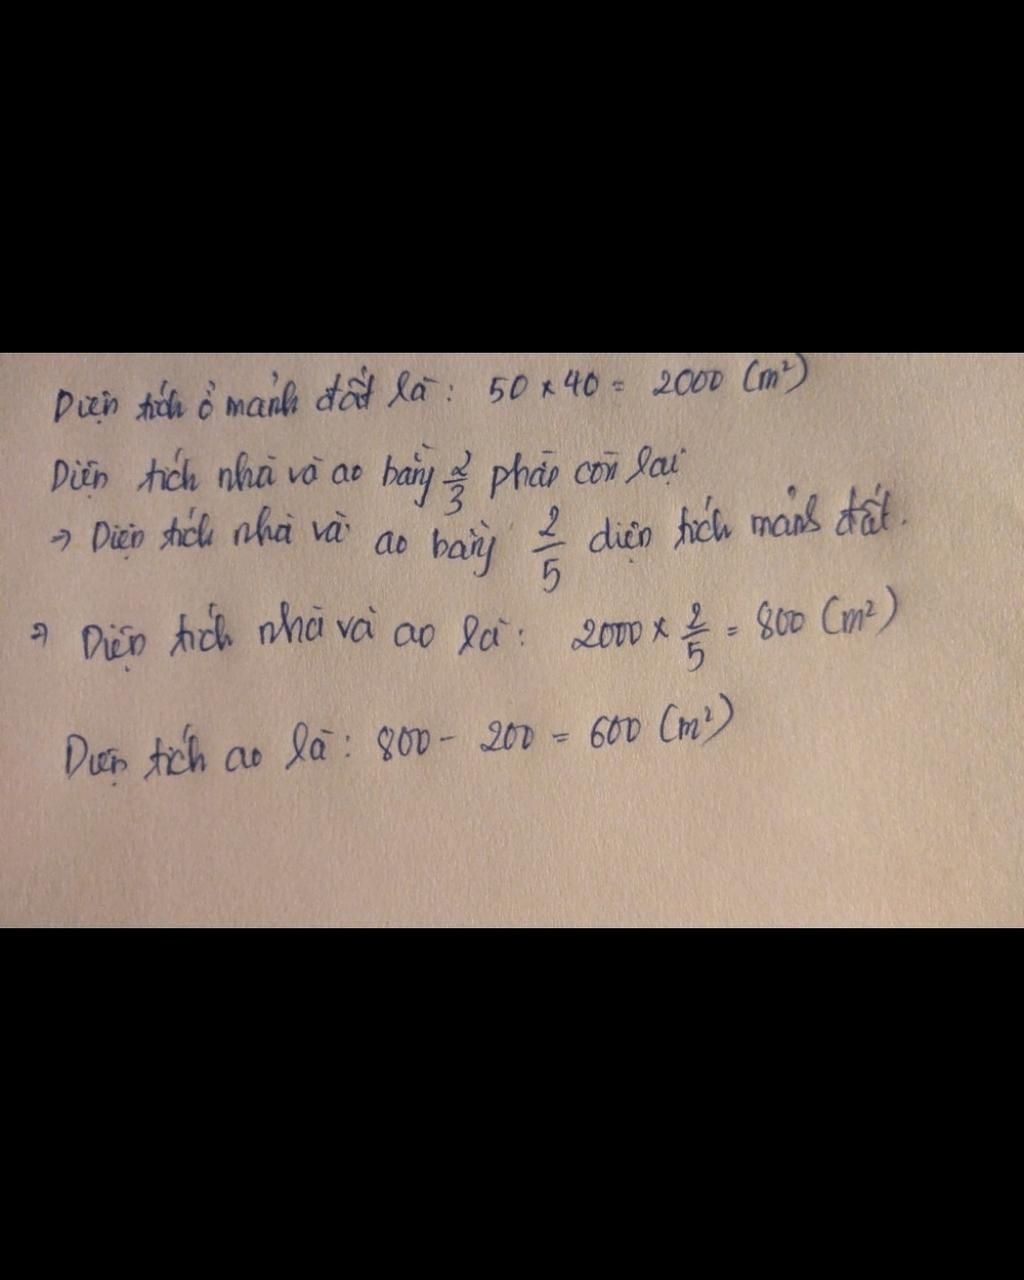 Diện tích ở mảnh đất là: 50 × 40 = 2000 (m²)
Diện tích nhà và ao bằng 2/3 phần còn lại
→ Diện tích nhà và ao bằng 2/5 diện tích mảnh đất.
⇒ Diện tích nhà và ao là: 2000 × 2/5 = 800 (m²)
Diện tích ao là: 800 - 200 = 600 (m²)